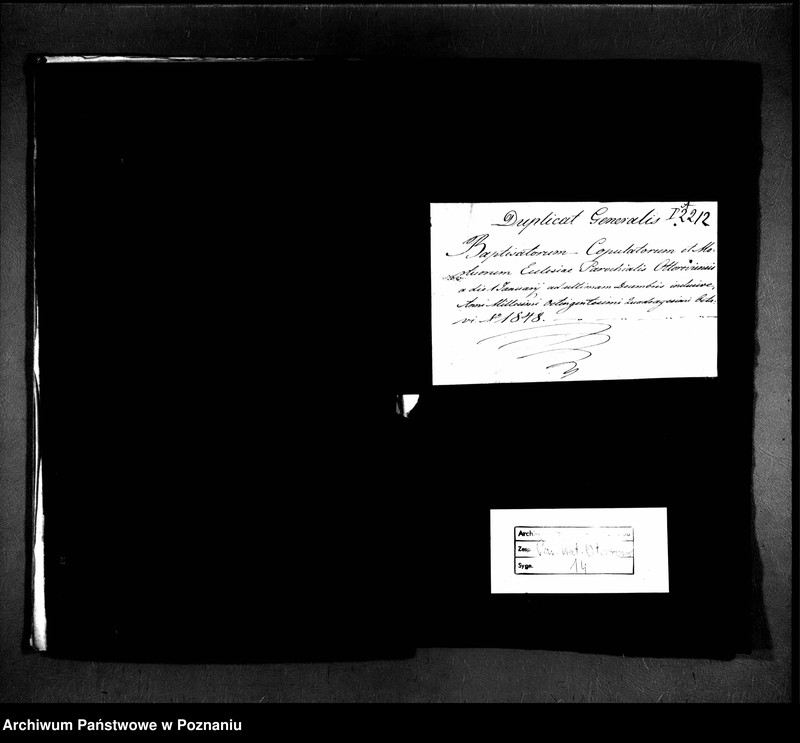 Duplicat Generalis
2212
Baptisatorum Copulatorum et Mor-
tuorum Eclesiae Parochialis Ottoroviensis
a die 1 Januarij ad ultimam Decembris inclusive,
Anni Millesimi Octingentesimi Quadragesimi Octa-
vi. № 1848.
Arch
Zesp. Par. kat.
Sygn. 14
Archiwum Państwowe w Poznaniu